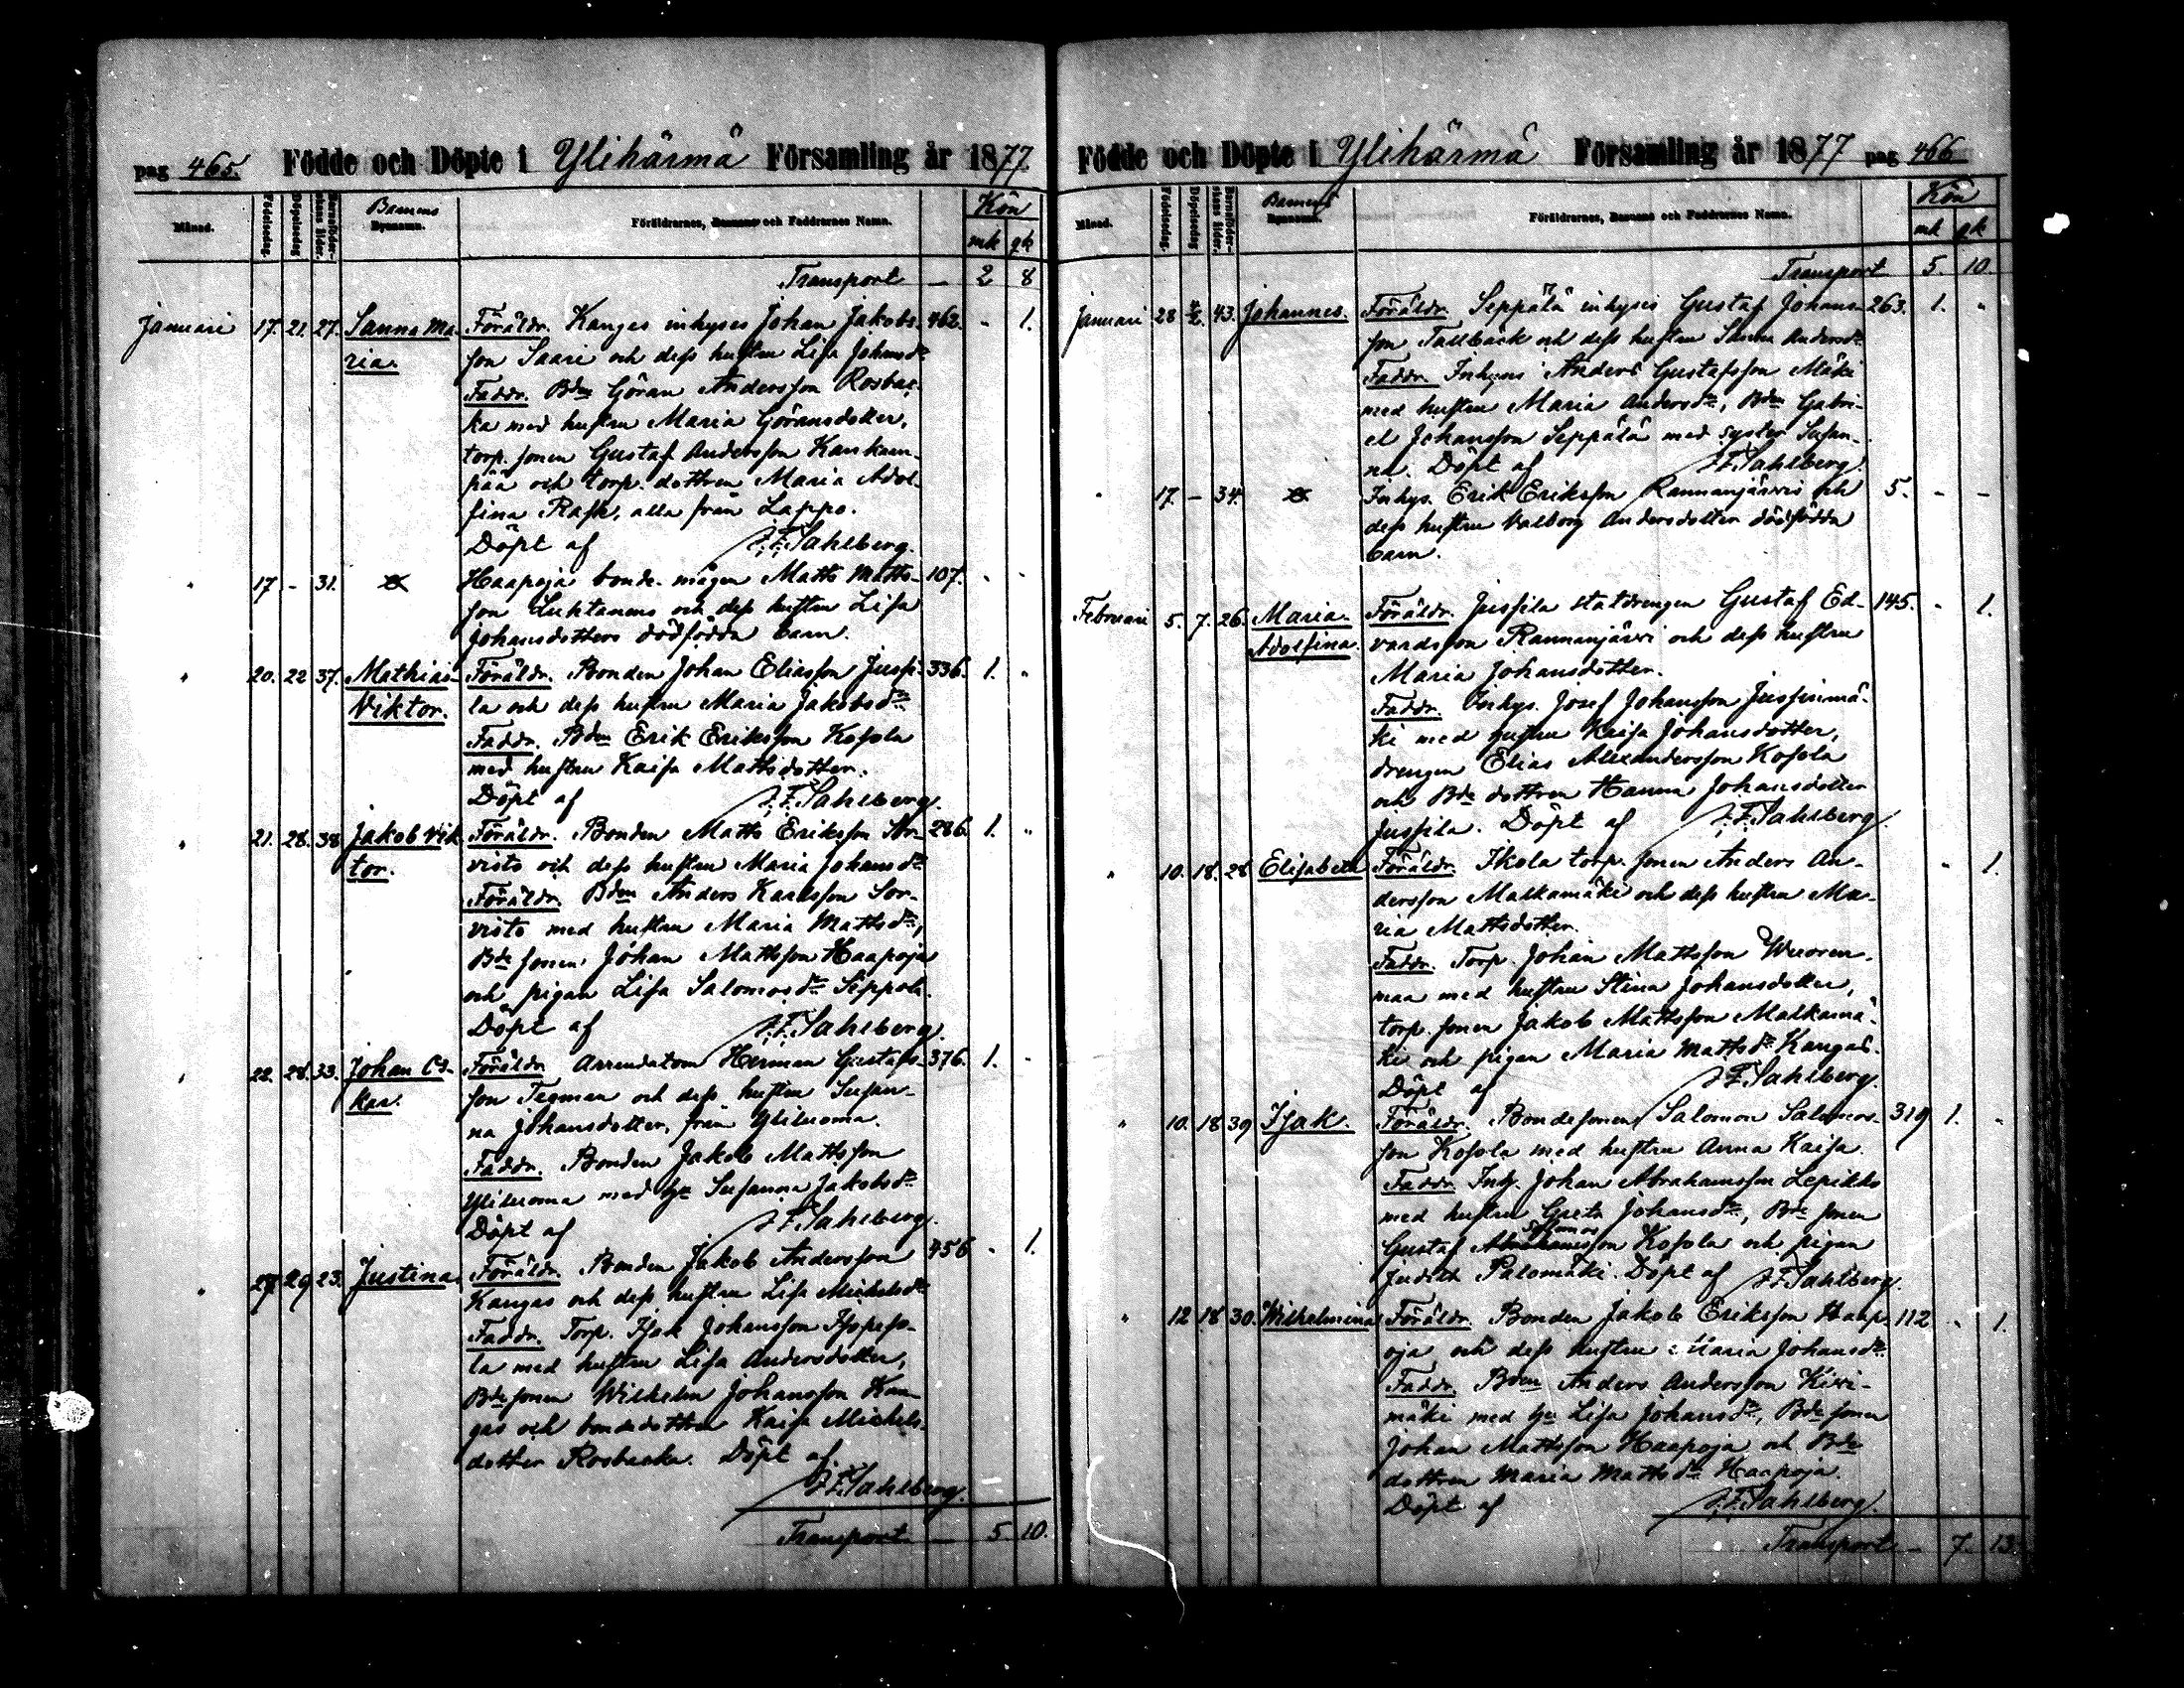 pag 465. Födde och Döpte i Ylihärmä Församling år 1877
Månad. Födelsedag. Döpelsedag Barnaföder-skans ålder. Barnens Föräldrarnes, och Faddrarnes Namn. Kön
mk qk
Transport — 2 8
Januari 17. 21. 27. Sanna Ma- Föräldr. Kangas inhyses Johan Jakobs- 462. - 1.
ria. son Saari och dess hustru Lisa Johansdr
Faddr. Bdn Göran Andersson Rosbac-
ka med hustru Maria Göransdotter,
torp. sonen Gustaf Andersson
pää och torp. dottren Maria Adol-
fina Rask, alla från Lappo.
Döpt af J.F. Sahlberg.
" 17 - 31. Haapoja bonde-mågen Matts Matts- 107. - -
son Luhtanens och dess hustru Lisa
Johansdotters dödfödda barn.
" 20. 22 37. Mathias Föräldr. Bonden Johan Eliasson Jussi- 336. 1. "
Viktor. la och dess hustru Maria Jakobsdr
Faddr. Bdn Erik Eriksson Kosola
med hustru Kaisa Mattsdotter.
Döpt af J.F. Sahlberg.
" 21. 28. 38 Jakob Vik- Föräldr. Bonden Matts Eriksson Sor- 286. 1. "
tor. visto och dess hustru Maria Johansdr
Föräldr. Bdn Anders Karlsson Sor-
visto med hustru Maria Mattsdr,
Bde sonen Johan Mattsson Haapoja
och pigan Lisa Salomosdr Seppälä.
Döpt af J.F. Sahlberg.
" 22. 28. 33. Johan Os- Föräldr. Arrendatorn Herman Gustafs- 376. 1. -
kar. son Tegman och dess hustru Susan-
na Johansdotter, från Yliluoma.
Faddr. Bonden Jakob Mattsson
Yliluoma med hu Susanna Jakobsdr
Döpt af J.F. Sahlberg.
" 27. 29 23. Justina. Föräldr. Bonden Jakob Andersson 456 - 1.
Kangas och dess hustru Lisa Michelsdr
Faddr. Torp. Isak Johansson
la med hustru Lisa Andersdotter,
Bde sonen Wilhelm Johansson Kan-
gas och bondedottren Kaisa Michels-
dotter Rosbacka. Döpt af
J.F. Sahlberg.
Transport — 5. 10.
Födde och Döpte i Ylihärmä Församling år 1877 pag 466
Månad. Födelsedag. Döpelsedag Barnaföder-skans ålder. Barnens Föräldrarnes, och Faddrarnes Namn. Kön
mk qk
Transport 5. 10.
Januari 28 4/2 43. Johannes. Föräldr. Seppälä inhyses Gustaf Johans- 263. 1. "
son Tallback och dess hustru Sanna Andersdr
Faddr. Inhyses Anders Gustafsson Mäki
med hustru Maria Andersdr, Bdn Gabri-
el Johansson Seppälä med syster Susan-
na. Döpt af J.F. Sahlberg.
" 17. - 34. Inhys. Erik Eriksson Rannanjärvis och 5. - -
dess hustru Valborg Andersdotter dödfödda
barn.
Februari 5. 7. 26. Maria Föräldr. Jussila statdrengen Gustaf Ed- 145. " 1.
Adolfina. vardsson Rannanjärvi och dess hustru
Maria Johansdotter.
Faddr. Inhys. Josef Johansson Jussinmä-
ki med hustru Kaisa Johansdotter,
drengen Elias Alexandersson Kosola
och Bde dottren Hanna Johansdotter
Jussila. Döpt af J.F. Sahlberg.
" 10. 18. 28 Elisabeta Föräldr. Ikola torp. sonen Anders An- " 1.
dersson Malkamäki och dess hustru Ma-
ria Mattsdotter.
Faddr. Torp. Johan Mattsson Wuoren-
maa med hustru Stina Johansdotter,
torp. sonen Jakob Mattsson Malkamä-
ki och pigan Maria Mattsdr Kangas.
Döpt af J.F. Sahlberg.
" 10. 18 39 Isak. Föräldr. Bondesonen Salomon Salomos- 319 1. "
son Kosola med hustru Anna Kaisa.
Faddr. Inh. Johan Abrahamsson Lepikko
med hustru Greta Johansdr, Bde sonen
Gustaf Salomosson Kosola och pigan
Judith Palomäki. Döpt af J.F. Sahlberg.
" 12 18 30. Wilhelmina Föräldr. Bonden Jakob Eriksson Haap- 112 " 1.
oja och dess hustru Maria Johansdr.
Faddr. Bdn Anders Andersson Kivi-
mäki med hu Lisa Johansdr, Bde sonen
Johan Mattsson Haapoja och Bde
dottren Maria Mattsdr Haapoja.
Döpt af J.F. Sahlberg.
Transport — 7. 13.